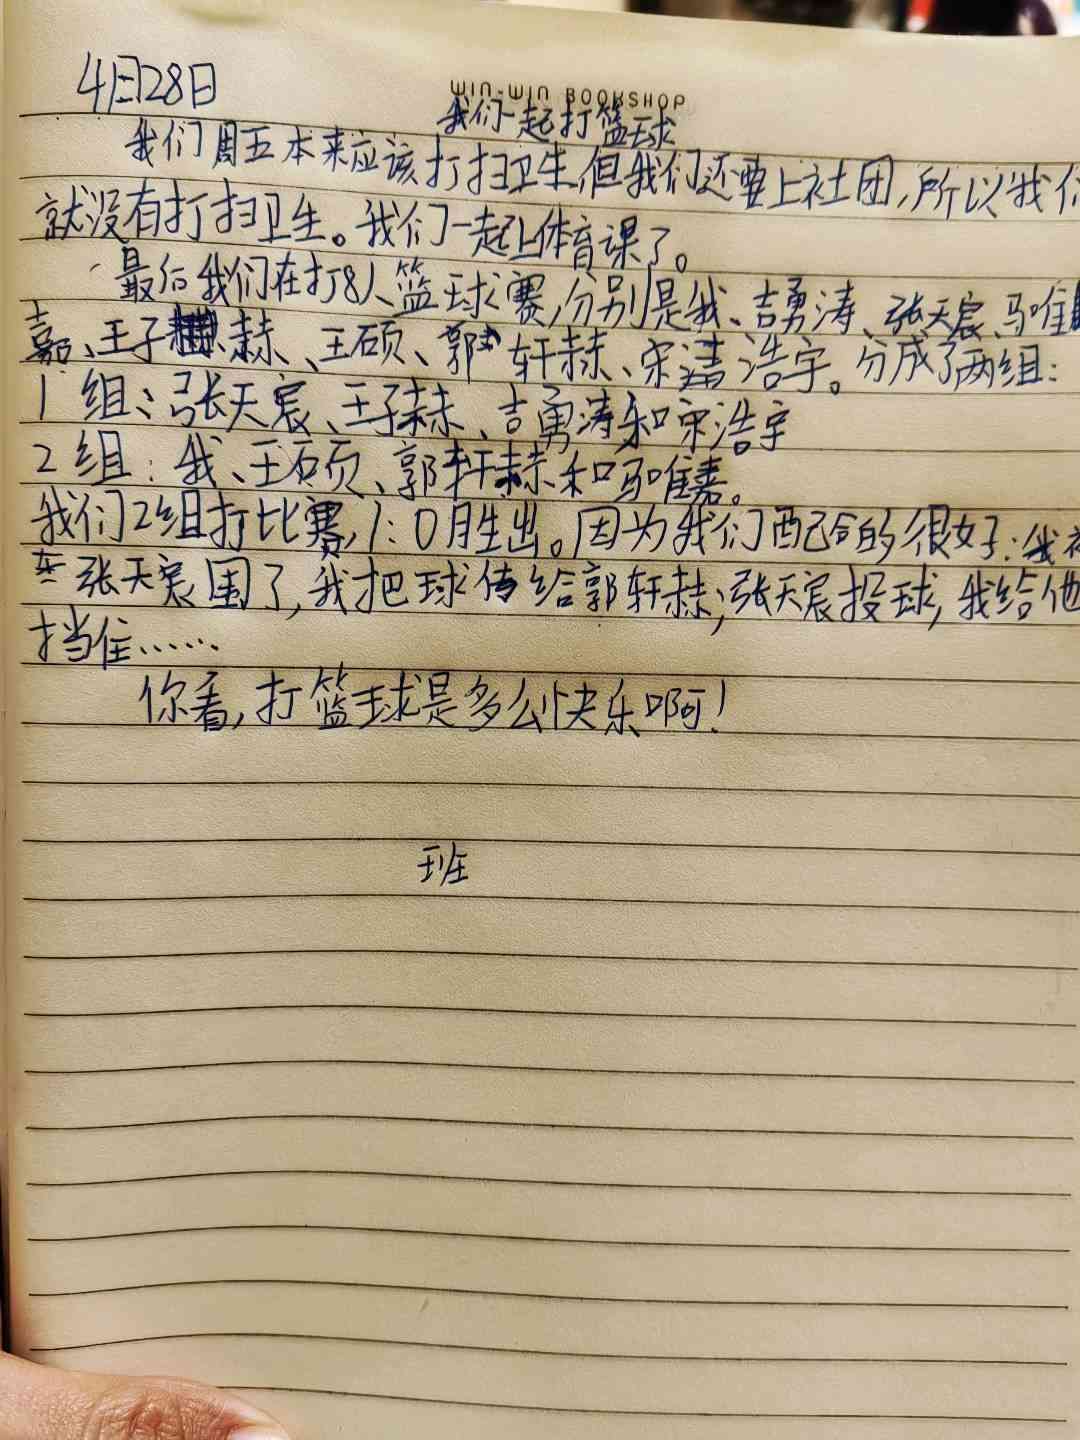 4月28日
WIN-WIN BOOKSHOP
我们一起打篮球
我们周五本来应该打扫卫生,但我们还要上社团,所以我们
就没有打扫卫生。我们一起上体育课了。
最后我们在打8人篮球赛,分别是我、吉勇涛、张天宸、马唯
嘉、王子赫、王硕、郭轩赫、宋浩宇。分成了两组:
1组:张天宸、王子赫、吉勇涛和宋浩宇
2组:我、王硕、郭轩赫和马唯嘉。
我们2组打比赛,1:0胜出。因为我们配合的很好:我被
张天宸围了,我把球传给郭轩赫;张天宸投球,我给他
挡住……
你看,打篮球是多么快乐啊!
班